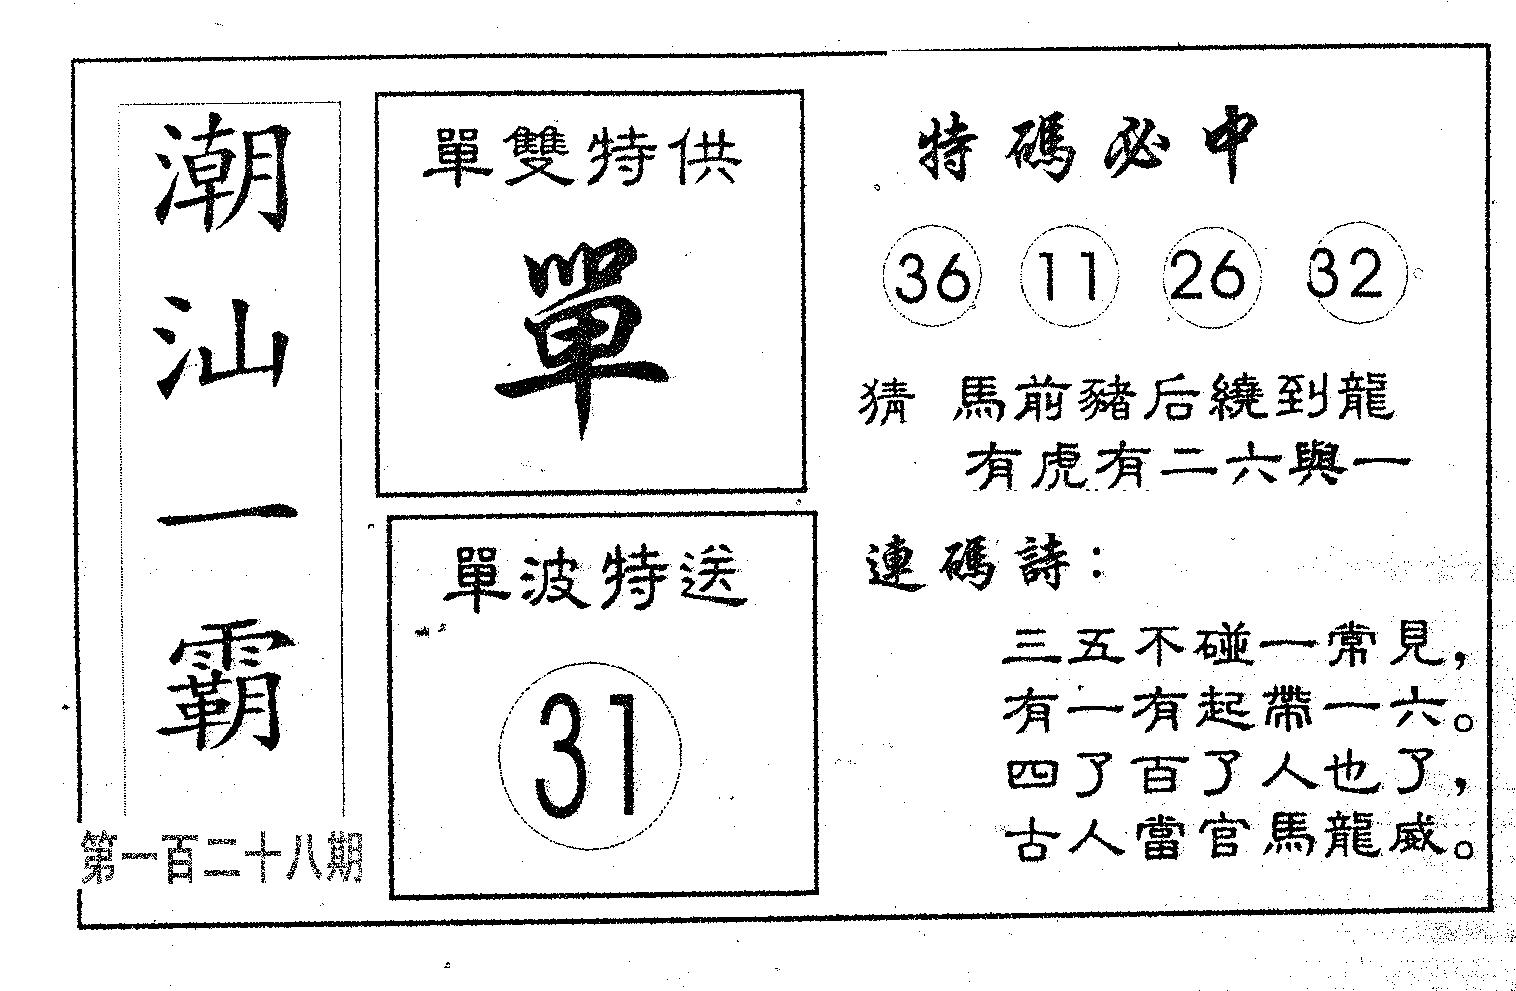 潮汕一霸
第一百二十八期
單雙特供
單
單波特送
31
特碼必中
36 11 26 32
猜 馬前豬后繞到龍
有虎有二六與一
連碼詩：
三五不碰一常見，
有一有起帶一六。
四了百了人也了，
古人當官馬龍威。